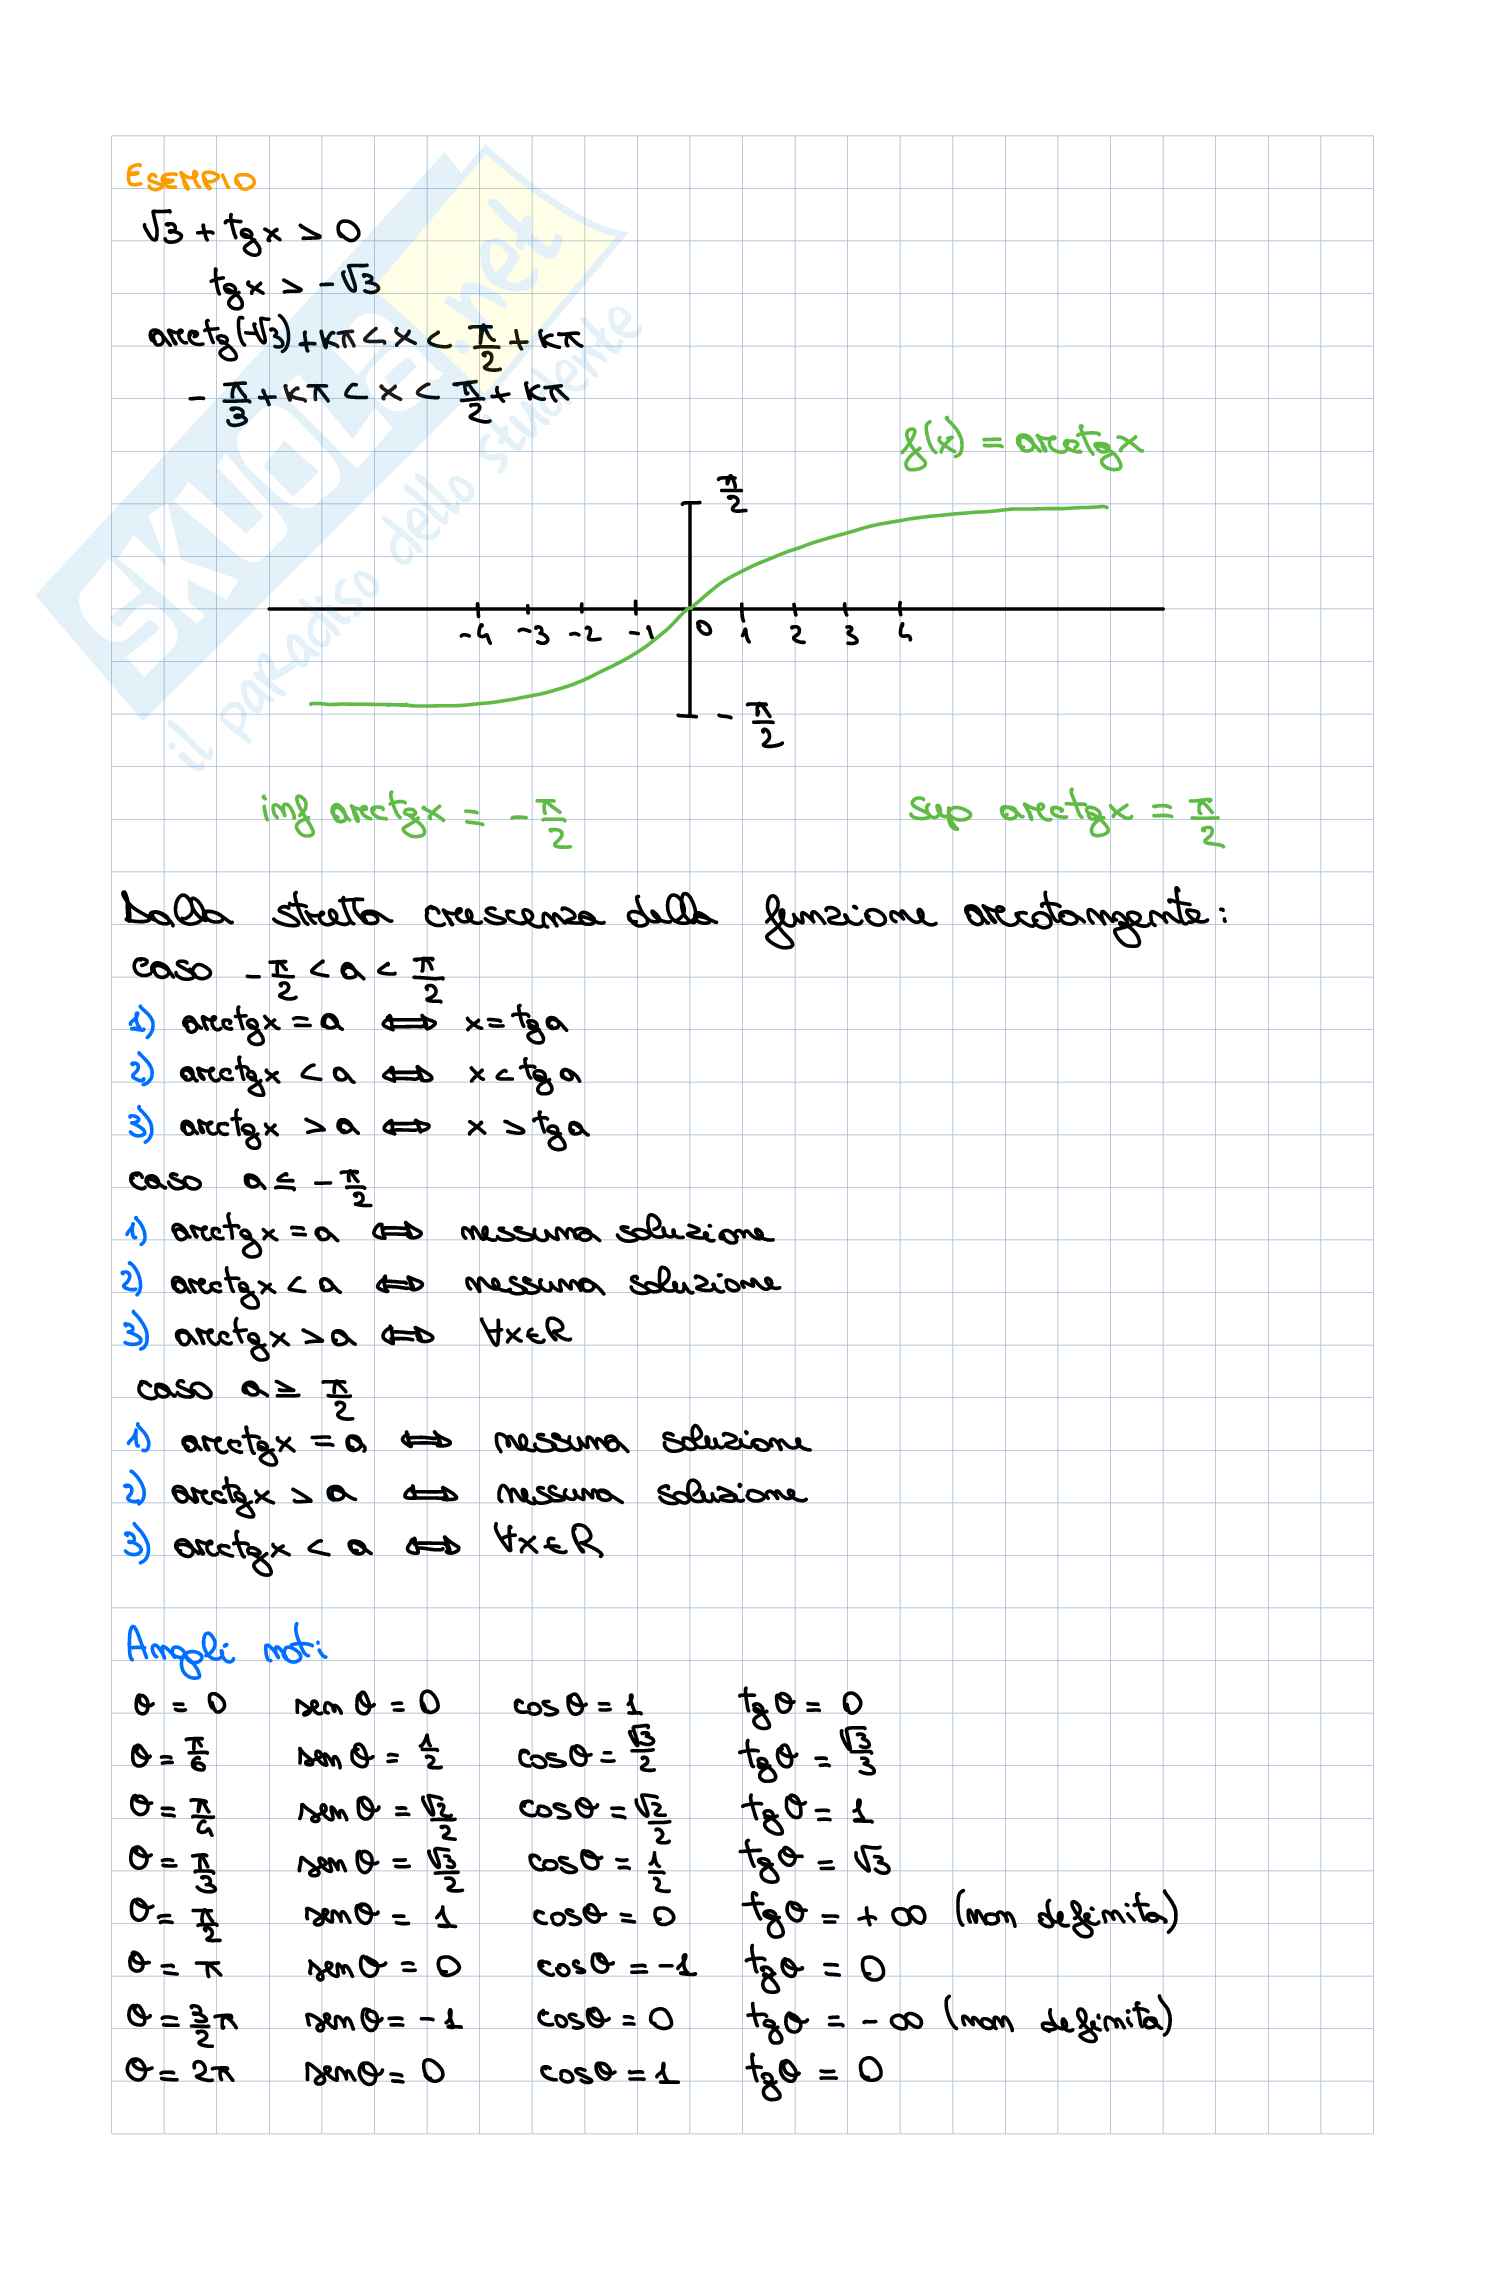 ESEMPIO
√3 + tgx > 0
tgx > -√3
arctg(-√3) + kπ < x < π/2 + kπ
- π/3 + kπ < x < π/2 + kπ
f(x) = arctgx
π/2
-4 -3 -2 -1 0 1 2 3 4
- π/2
inf arctgx = - π/2 sup arctgx = π/2
Dalla stretta crescenza della funzione arcotangente:
caso - π/2 < a < π/2
1) arctgx = a ⟺ x = tga
2) arctgx < a ⟺ x < tga
3) arctgx > a ⟺ x > tga
caso a ≤ - π/2
1) arctgx = a ⟺ nessuna soluzione
2) arctgx < a ⟺ nessuna soluzione
3) arctgx > a ⟺ ∀x∈R
caso a ≥ π/2
1) arctgx = a ⟺ nessuna soluzione
2) arctgx > a ⟺ nessuna soluzione
3) arctgx < a ⟺ ∀x∈R
Angoli noti
θ = 0 senθ = 0 cosθ = 1 tgθ = 0
θ = π/6 senθ = 1/2 cosθ = √3/2 tgθ = √3/3
θ = π/4 senθ = √2/2 cosθ = √2/2 tgθ = 1
θ = π/3 senθ = √3/2 cosθ = 1/2 tgθ = √3
θ = π/2 senθ = 1 cosθ = 0 tgθ = +∞ (non definita)
θ = π senθ = 0 cosθ = -1 tgθ = 0
θ = 3/2 π senθ = -1 cosθ = 0 tgθ = -∞ (non definita)
θ = 2π senθ = 0 cosθ = 1 tgθ = 0
SKUOLA.net
il paradiso dello studente